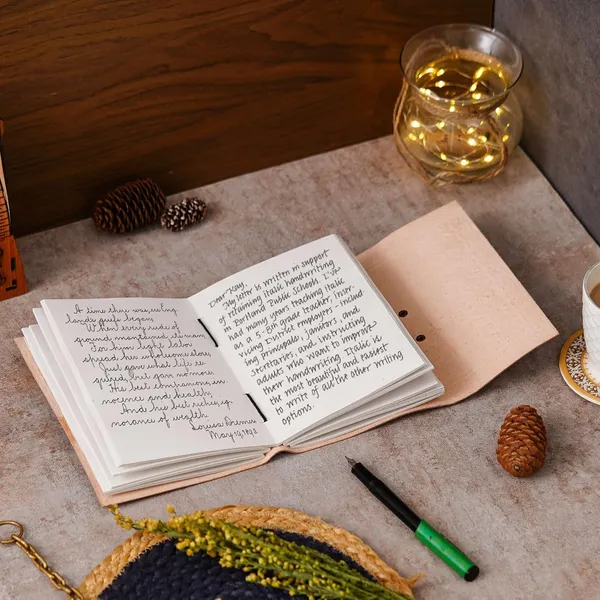 A time there was, ere
lands began,
When every rood of
ground maintained its man;
For him light labor
spread her wholesome store,
Just gave what life re-
quired, but gave no more.
His best companions, in-
nocence and health,
And his best riches, ig-
norance of wealth.
May 19,
Dear Kay,
My letter is written in support
of retaining italic handwriting
in Portland Public Schools. I've
had many years teaching italic
as a 5th grade teacher, instr-
ucting District employees - includ-
ing principals, janitors, and
secretaries, and instructing
adults who want to improve
their handwriting. Italic is
the most beautiful and easiest
to write of all the other writing
options.